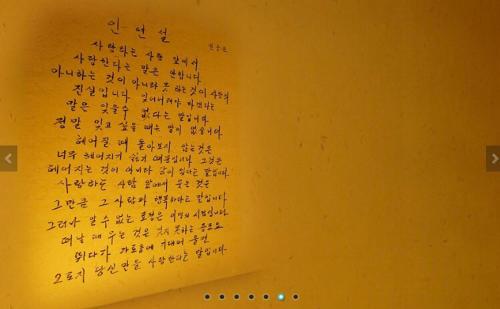 인연설
한용운
사랑하는 사람 앞에서
사랑한다는 말은 안합니다
아니하는 것이 아니라 못 하는 것이 사랑의
진실입니다 잊어버려야 하겠다는
말은 잊을수 없다는 말입니다
정말 잊고 싶을 때는 말이 없습니다
헤어질 때 돌아보지 않는것은
너무 헤어지기 싫기 때문입니다 그것은
헤어지는 것이 아니라 같이 있다는 말입니다
사랑하는 사람 앞에서 웃는 것은
그만큼 그 사람과 행복하다는 말입니다
그러나 알 수 없는 표정은 이별의 시점입니다
떠날 때 우는 것은 잊지 못하는 증거요
뛰다가 가로등에 기대어 울면
오로지 당신만을 사랑한다는 말입니다